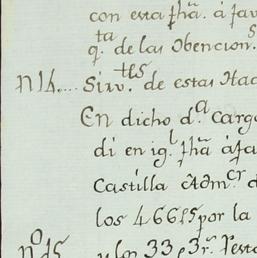 con esta fha. á fav
q.ta de las Obencion.s
n14.... Sirv.tes de estas Hac
En dicho d.a Carg
di en ig.l fha áfa
Castilla Adm.cr d
los 46615 por la
n.o 15 y los 33 p 3 r.s Testa